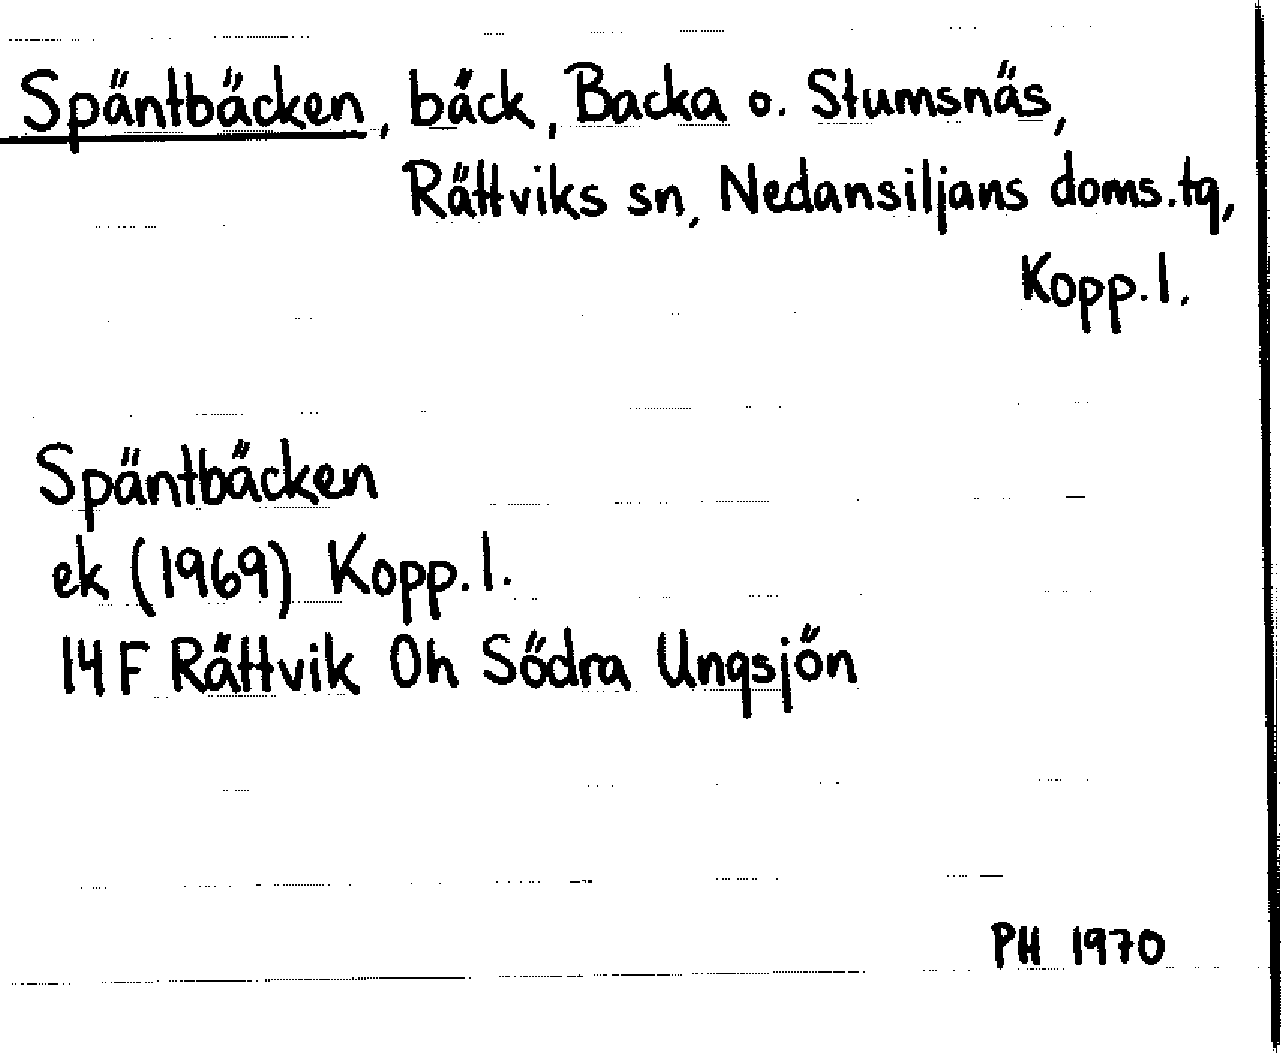 Späntbäcken, bäck, Backa o. Stumsnäs,
Rättviks sn, Nedansiljans doms.tg,
Kopp.l.
Späntbäcken
ek (1969) Kopp.l.
14F Rättvik 0h Södra Ungsjön
PH 1970